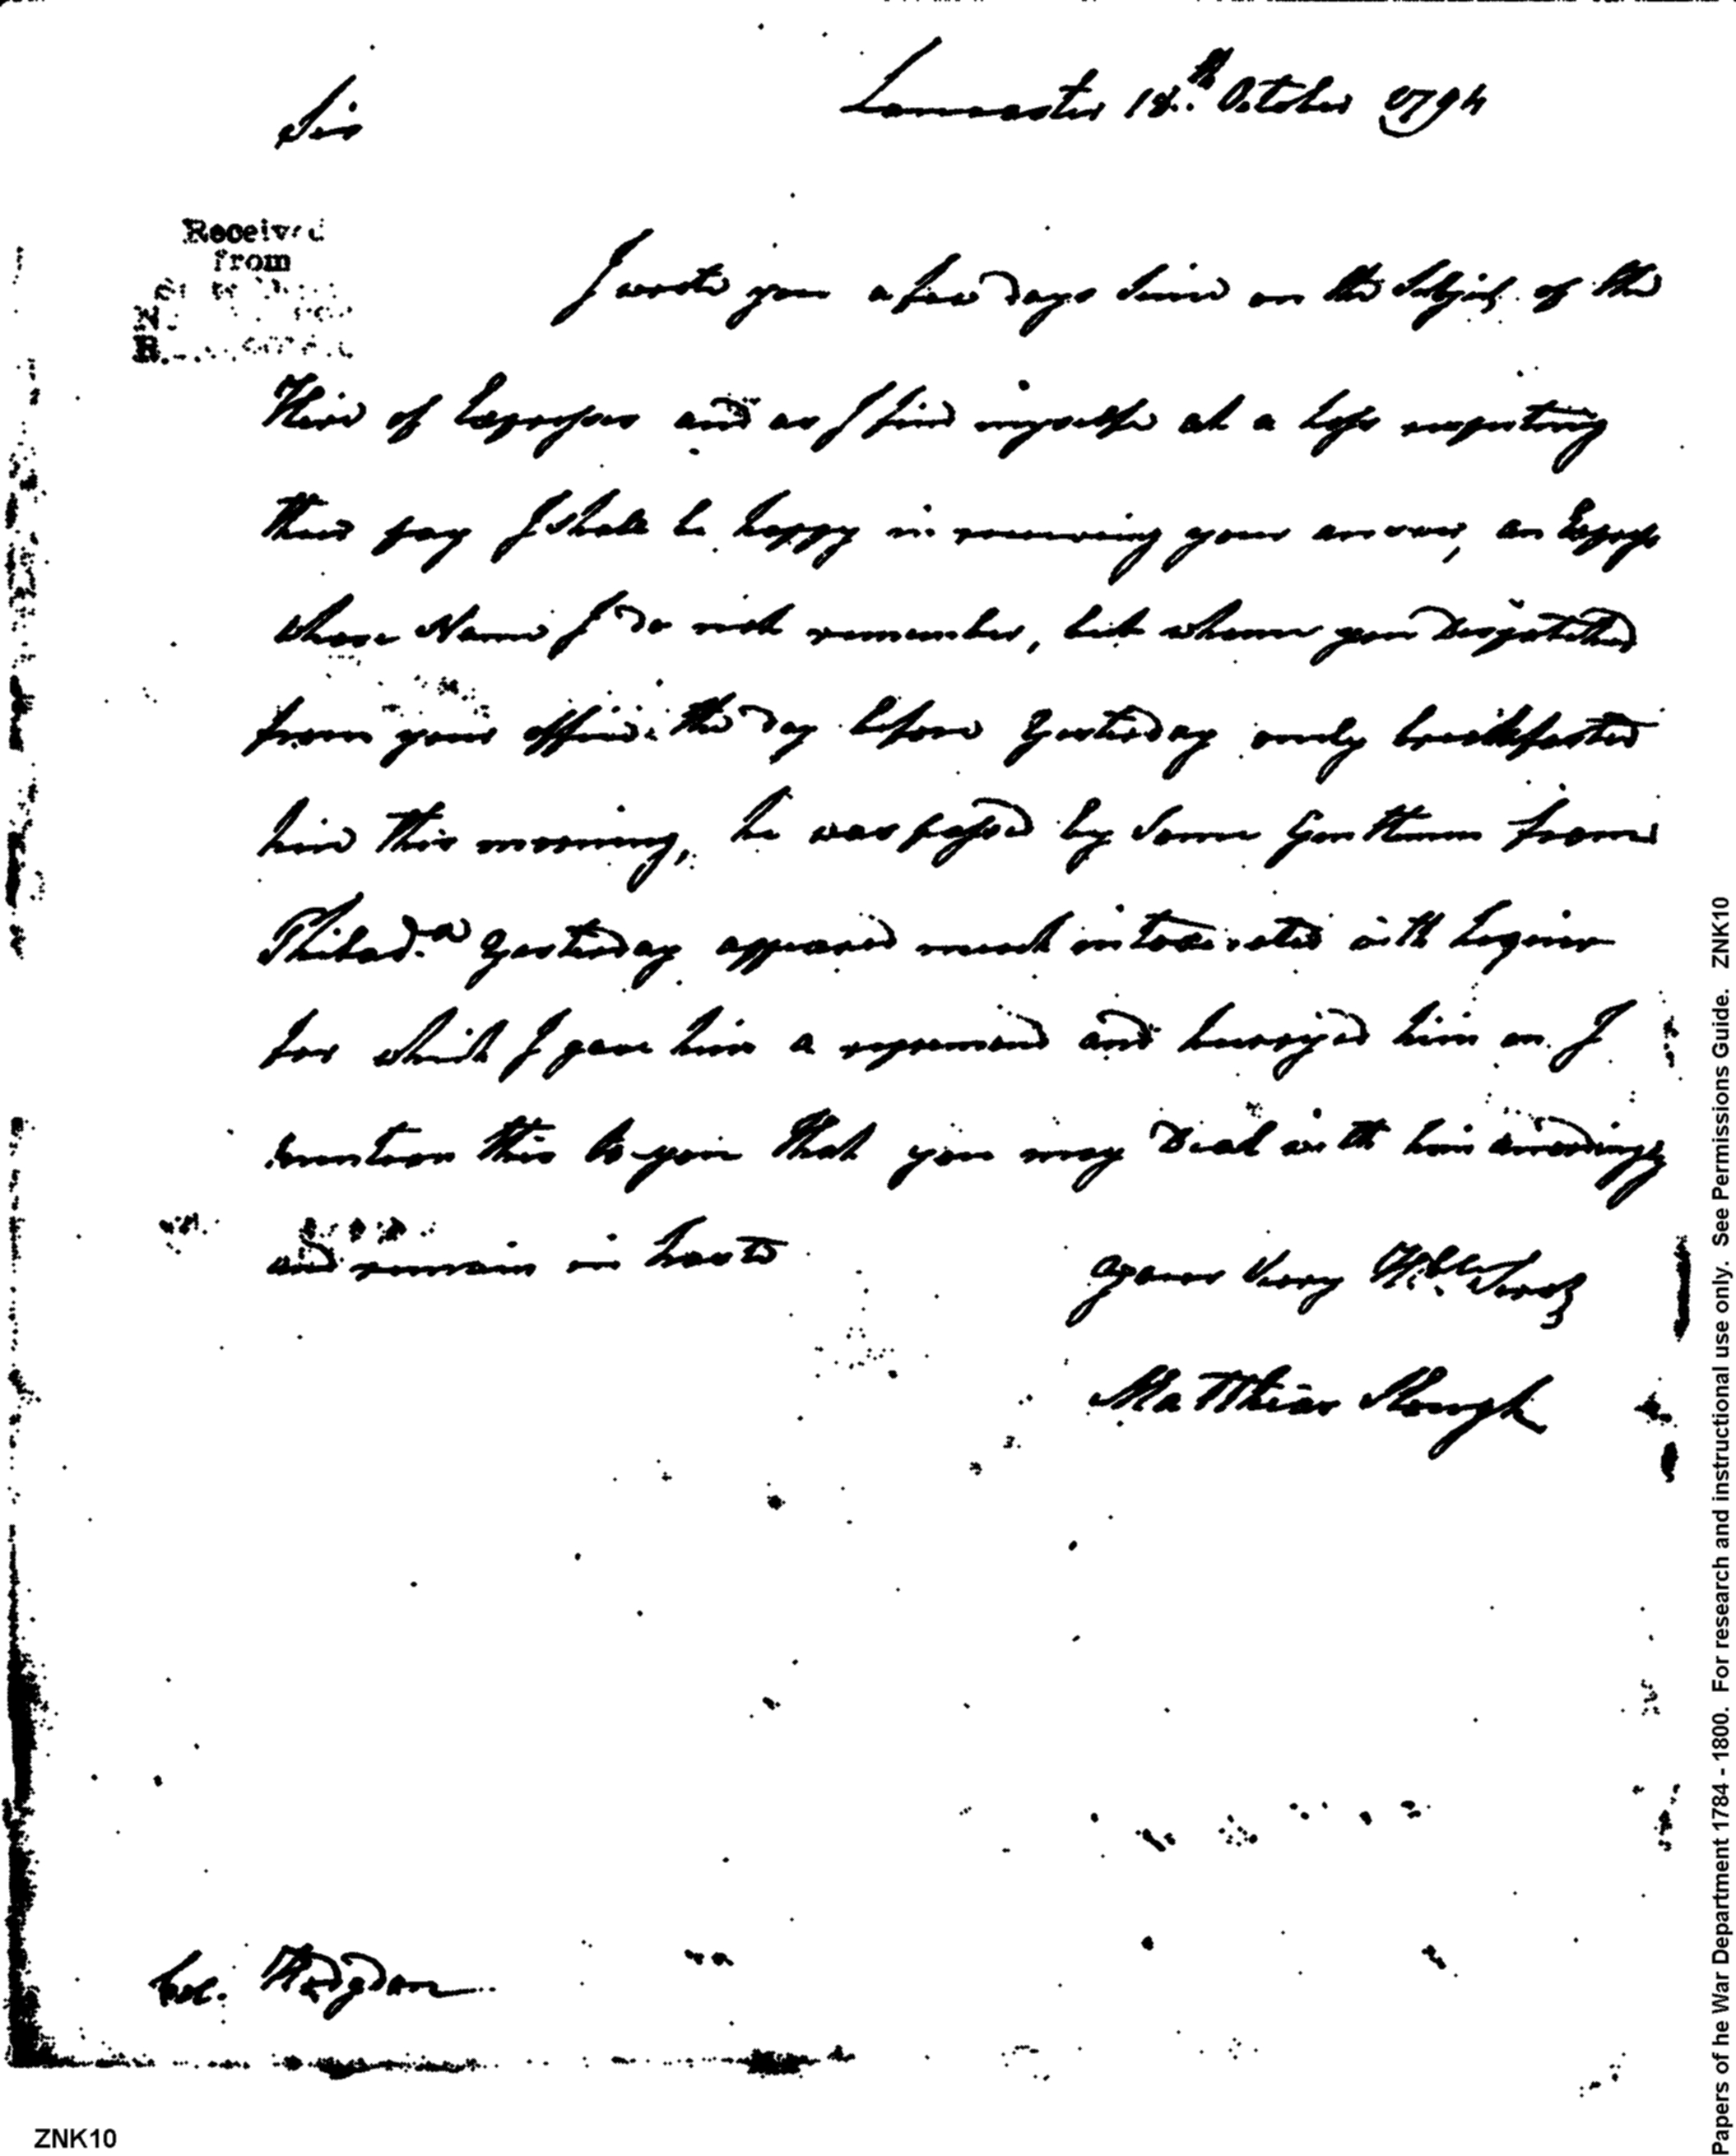 Lancaster 18th October 1794
Sir
Received
from
I wrote you a few days since on the Subject of the
Hire of Expresses and as I find myself at a loss respecting
their pay I shall be happy in receiving your answer, an Express
whose Name I do not remember, but whom you dispatched
from your office the day before yesterday only breakfasted
here this morning, he was passed by some Gentlemen from
Philada yesterday appeared much intoxicated with Liquor
for which I gave him a reprimand and hurryed him on. I
mention this to you that you may deal with him accordingly
and remain in haste
Yours Very Hble Servt
Matthias Slough
Col. Hodgdon
ZNK10
Papers of he War Department 1784 - 1800. For research and instructional use only. See Permissions Guide. ZNK10